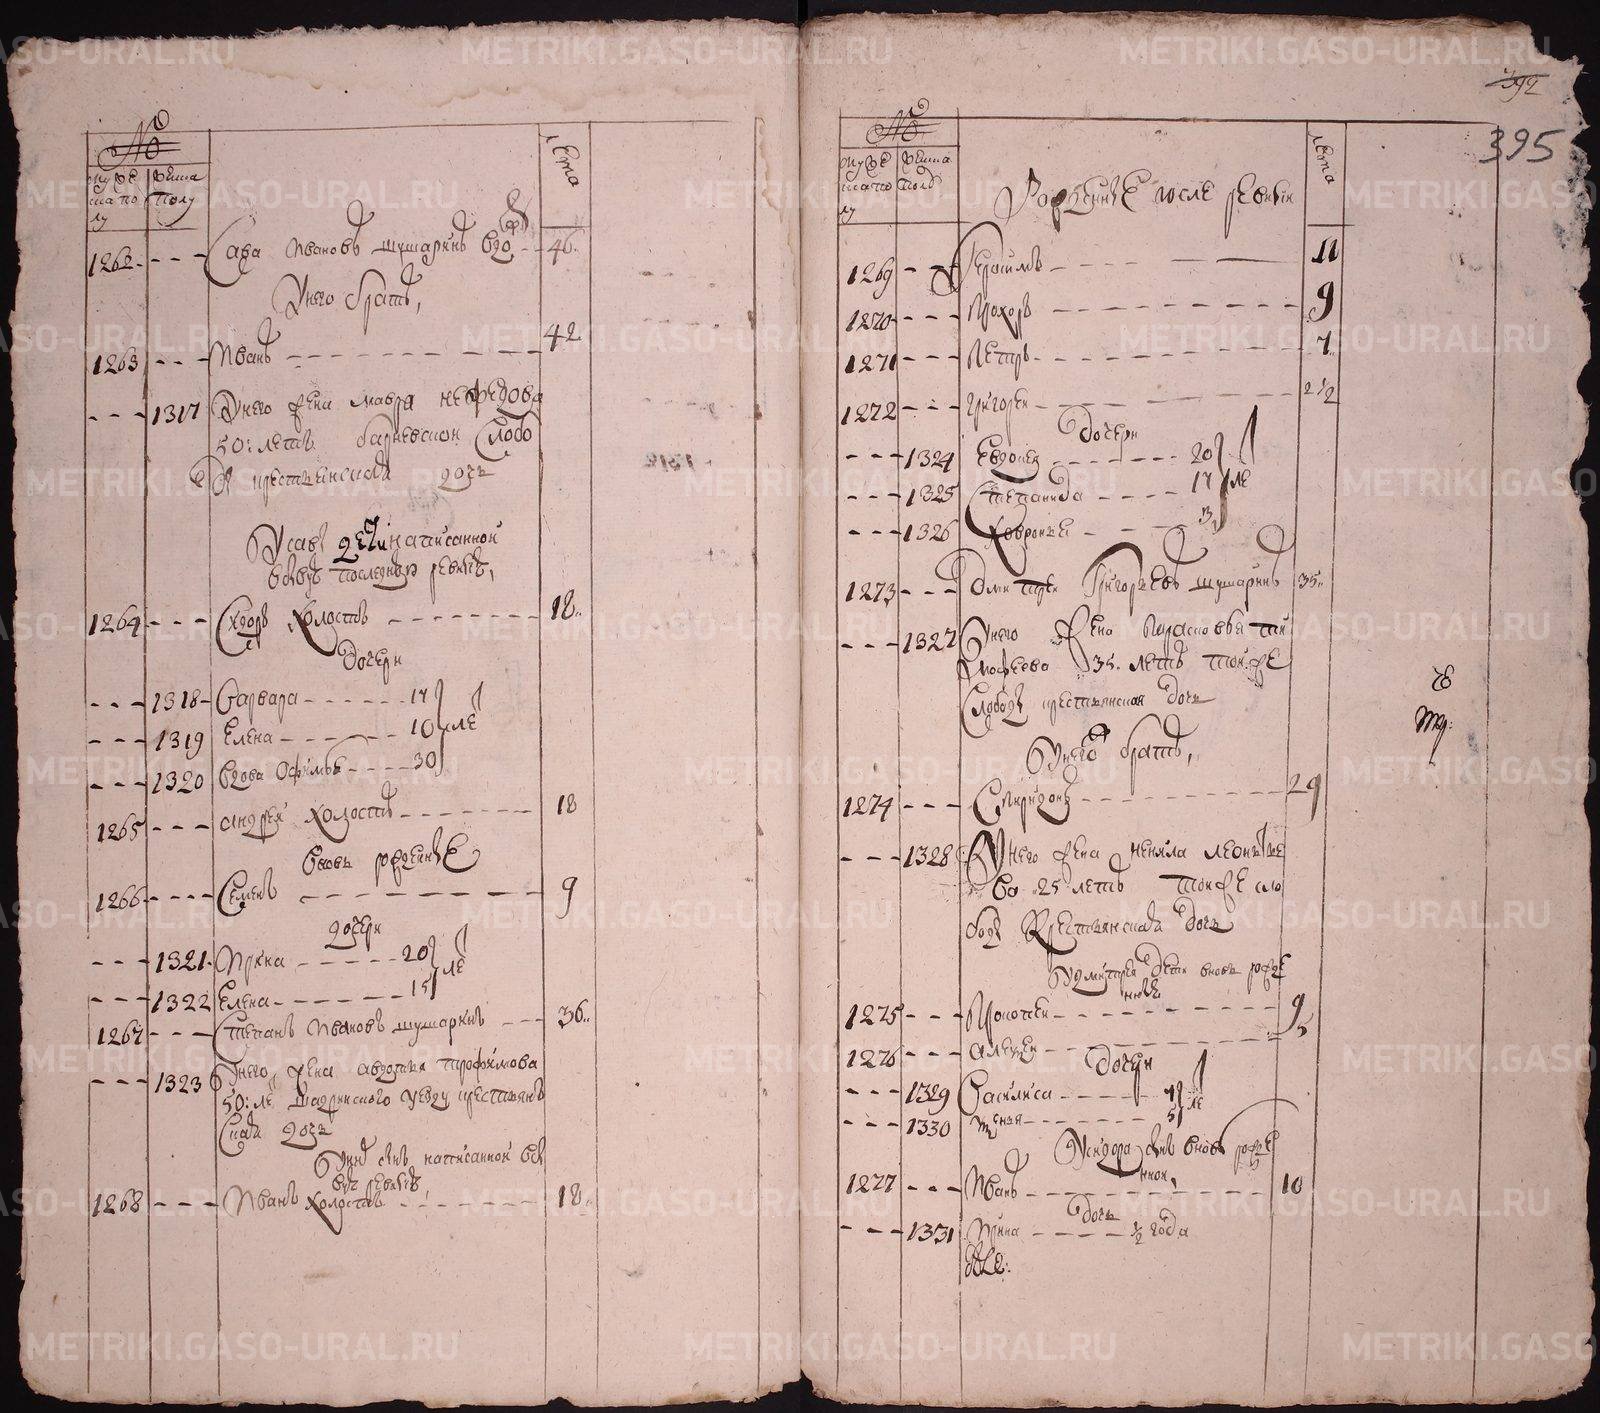 №
муже
ска по
лу
женска
полу
лета
1262 Сава Ивановъ шушаринъ вдо 46
У него братъ
1263 Иванъ 42
1317 У него жена мавра нефедова
50: летъ барневской слобо
ды крестьянская дочь
У савы дети написанной
последней ревизе
1264 холостъ 18
дочери
1318 Варвара 17
1319 Елена 10 ле
1320 вдова 30
1265 андрей холостъ 18
вновь рожденные
1266 Семенъ 9
дочери
1321 Ирина 20
1322 Елена 15 ле
1267 Степанъ Ивановъ шушаринъ 36
1323 У него жена авдотья трофимова
50: ле шадринского уезду крестьян
ская дочь
сынъ написанной
ревизе
1268 Иванъ холостъ 18
392
395
№
муже
ска по
лу
женска
полу
лета
Рожденные после ревизи
1269 Герасимъ 11
1270 Прохоръ 9
1271 Петръ 7
1272 григорей 2 1/2
дочери
1324 Евдокея 20
1325 Степанида 17 ле
1326 Хавронья 13
1273 Дмитрей Григорьевъ шушаринъ 35
1327 У него жена Парасковья ти
мофеева 35 летъ той же
Слободы крестьянская дочь
У него братъ
1274 Спиридонъ 29
1328 У него жена ненила леонтье
ва 25 летъ той же сло
боды Крестьянская дочь
У дмитрея дети вновь рожде
нные
1275 Прокопей 9
1276 алексей 5
дочери
1329 Василиса
1330 5 ле
сынъ вновь рожде
нной
1277 Иванъ 10
дочь
1331 Ирина 1/2 года